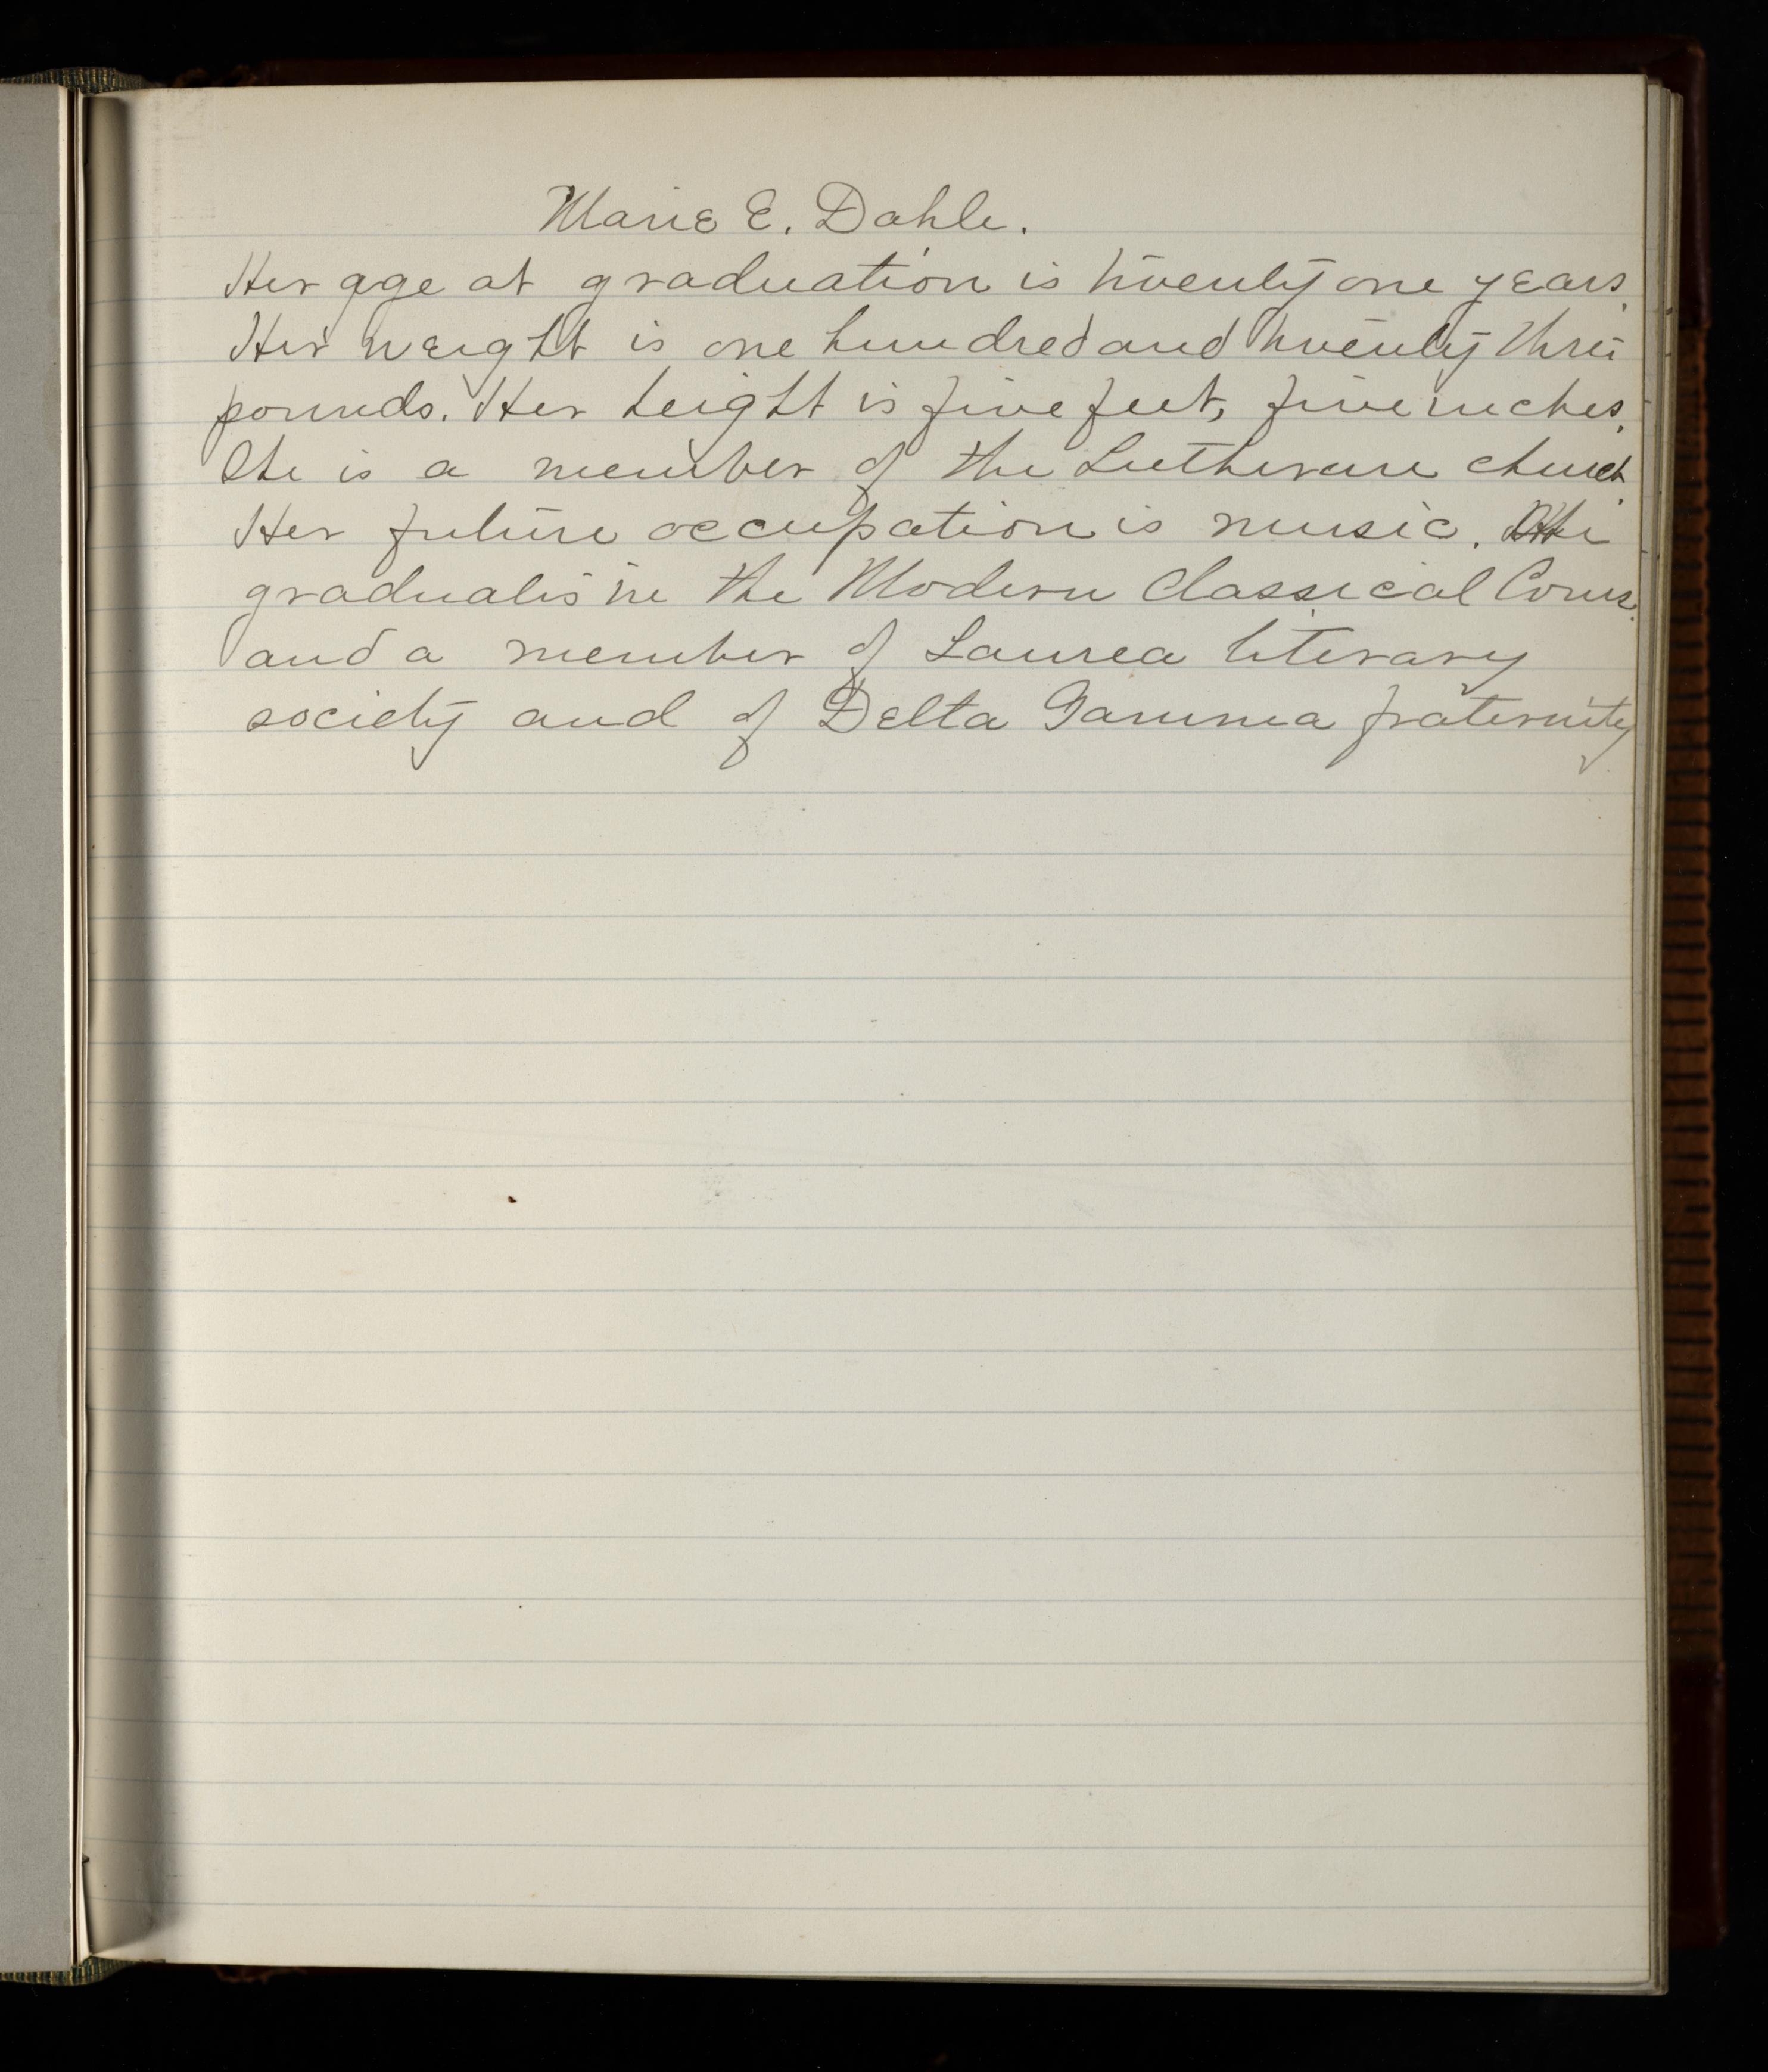 Marie E. Dahle.
Her age at graduation is twenty one years.
Her weight is one hundred and twenty three
pounds. Her height is five feet, five inches.
She is a member of the Lutheran church.
Her future occupation is music. She
graduates in the Modern Classical Course
and a member of Laurea literary
society and of Delta Gamma fraternity